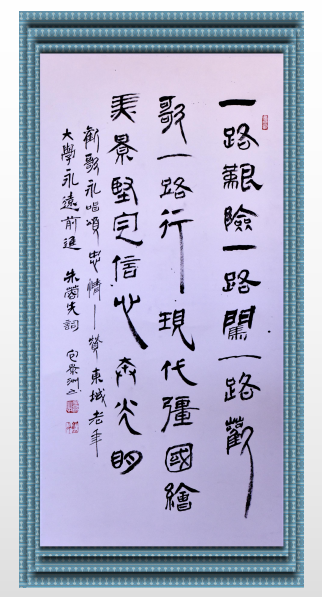 一路艱險一路闖一路歡
歌一路行一現代彊國繪
美景堅定信心奔光明
歡歌永唱頌忠情一贊東城老年
大學永遠前進 朱蓉先詞